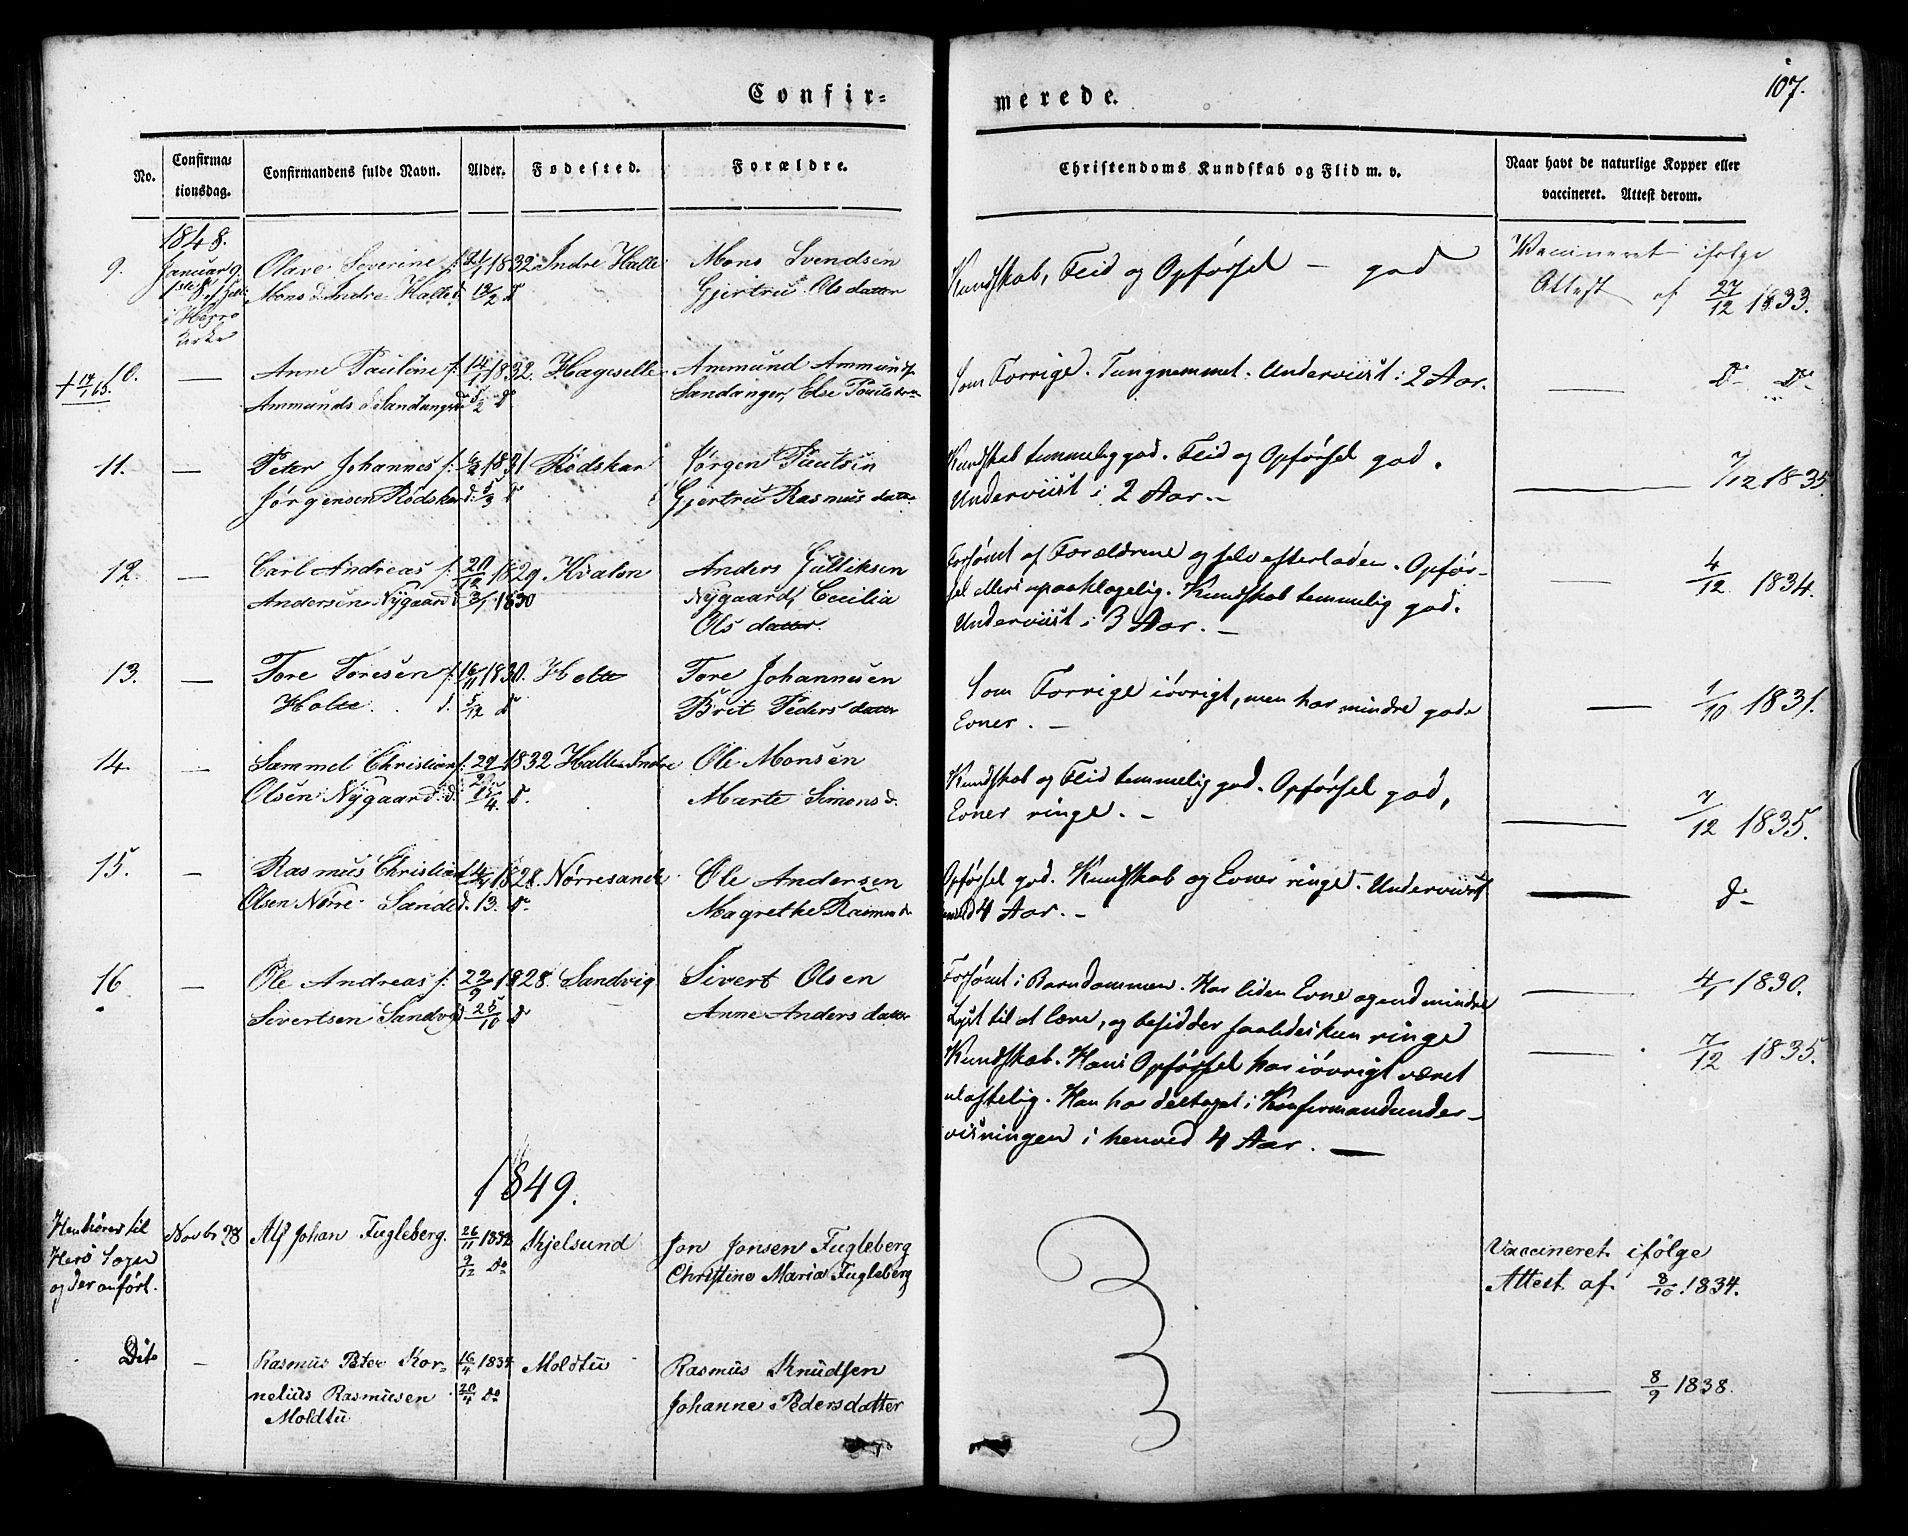 107.
Confir-
merede.
No.
Confirma-
tionsdag.
Confirmandens fulde Navn.
Alder.
Fødested.
Forældre.
Christendoms Kundskab og Flid m. v.
Naar havt de naturlige Kopper eller
vaccineret. Attest derom.
1848.
9. Januar 9. Olave Severine f. 21/1 1832 Indre Halle Mons Svendsen
Mons d. Indre Halle d. 12/2 d° Gjertru Olsdatter
i Herrø
Kirke
Kundskab, Flid og Opførsel – god
Vaccineret ifølge
Attest af 27/12 1833.
+ 17/1 65.
10. — Anne Pauline f. 14/1 1832. Hageselle Ammund Ammunds.
Ammunds d. Sandanger d. 5/2 d° Sandanger, Else Poulsd.
Som Forrige. Tungnemmet. Underviist i 2 Aar.
— D° D°
11. — Peter Johannes f. 1831 Rødskar Jørgen Paulsen
Jørgensen Rødskar d. 5/3 d° Gjertru Rasmusdatter
Kundskab temmelig god. Flid og Opførsel god.
Underviist i 2 Aar. –
— 7/12 1835.
12. — Carl Andreas f. 20/12 1829 Kvalen Anders Gulliksen
Andersen Nygaard d. 3/1 1830 Nygaard, Cecilia
Olsdatter.
Forsømt af Forældrene og selv efterladen. Opfør-
sel ellers upaaklagelig. Kundskab temmelig god.
Underviist i 3 Aar. –
— 4/12 1834.
13. — Tore Toresen f. 16/11 1830. Holte Tore Johannesen
Holte. d. 5/12 d° Brit Pedersdatter
Som Forrige iøvrigt, men har mindre gode
Evner. –
— 1/10 1831.
14. — Sammel Christian f. 29/2 1832 Halle Indre Ole Monsen
Olsen Nygaard d. 15/4 d°. Marte Simonsd.
Kundskab og Flid temmelig god. Opførsel god,
Evner ringe. –
— 7/12 1835.
15. — Rasmus Christian 1828. Nørresande Ole Andersen
Olsen Nørre Sande d. 13. d° Magrethe Rasmusd.
Opførsel god. Kundskab og Evner ringe. – Underviist
i 4 Aar. –
— d°
16 — Ole Andreas f. 22/9 1828. Sandvig Sivert Olsen
Sivertsen Sandvig d. 25/10 d° Anne Andersdatter
Forsømt i Barndommen. Har liden Evne og end mindre
Lyst til at lære, og besidder saaledes kun ringe
Kundskab. Hans Opførsel har iøvrigt været
ulastelig. Han har deltaget i Konfirmandunder-
visningen i henved 4 Aar. —
— 4/1 1830.
— 7/12 1835.
1849.
Henhører til Novbr 28 Alf Johan Fugleberg. 26/11 1832 Skjelsund Jon Jonsen Fugleberg
Herø Sogn 9/12 d° Christine Maria Fugleberg
og der anført.
Vaccineret ifølge
Attest af 8/10 1834.
Dito — Rasmus Peter Kor- 16/4 1834 Moldtu Rasmus Knudsen
nelius Rasmusen 20/4 d° Johanne Pedersdatter
Moldtu
— 8/9 1838.